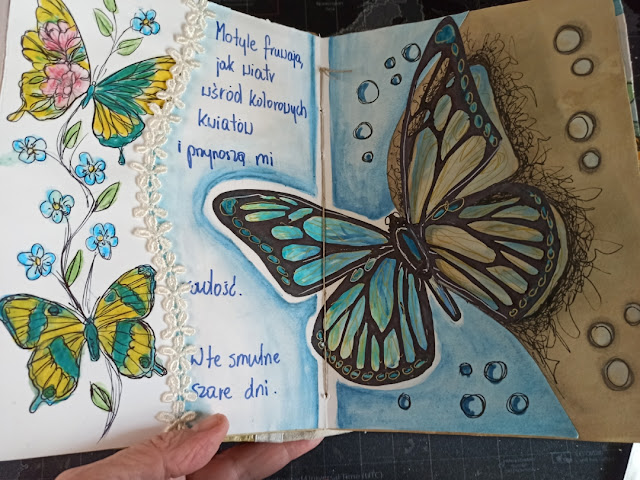 Motyle fruwają,
jak wiatr
wśród kolorowych
kwiatów
i przynoszą mi
radość.
W te smutne
szare dni.